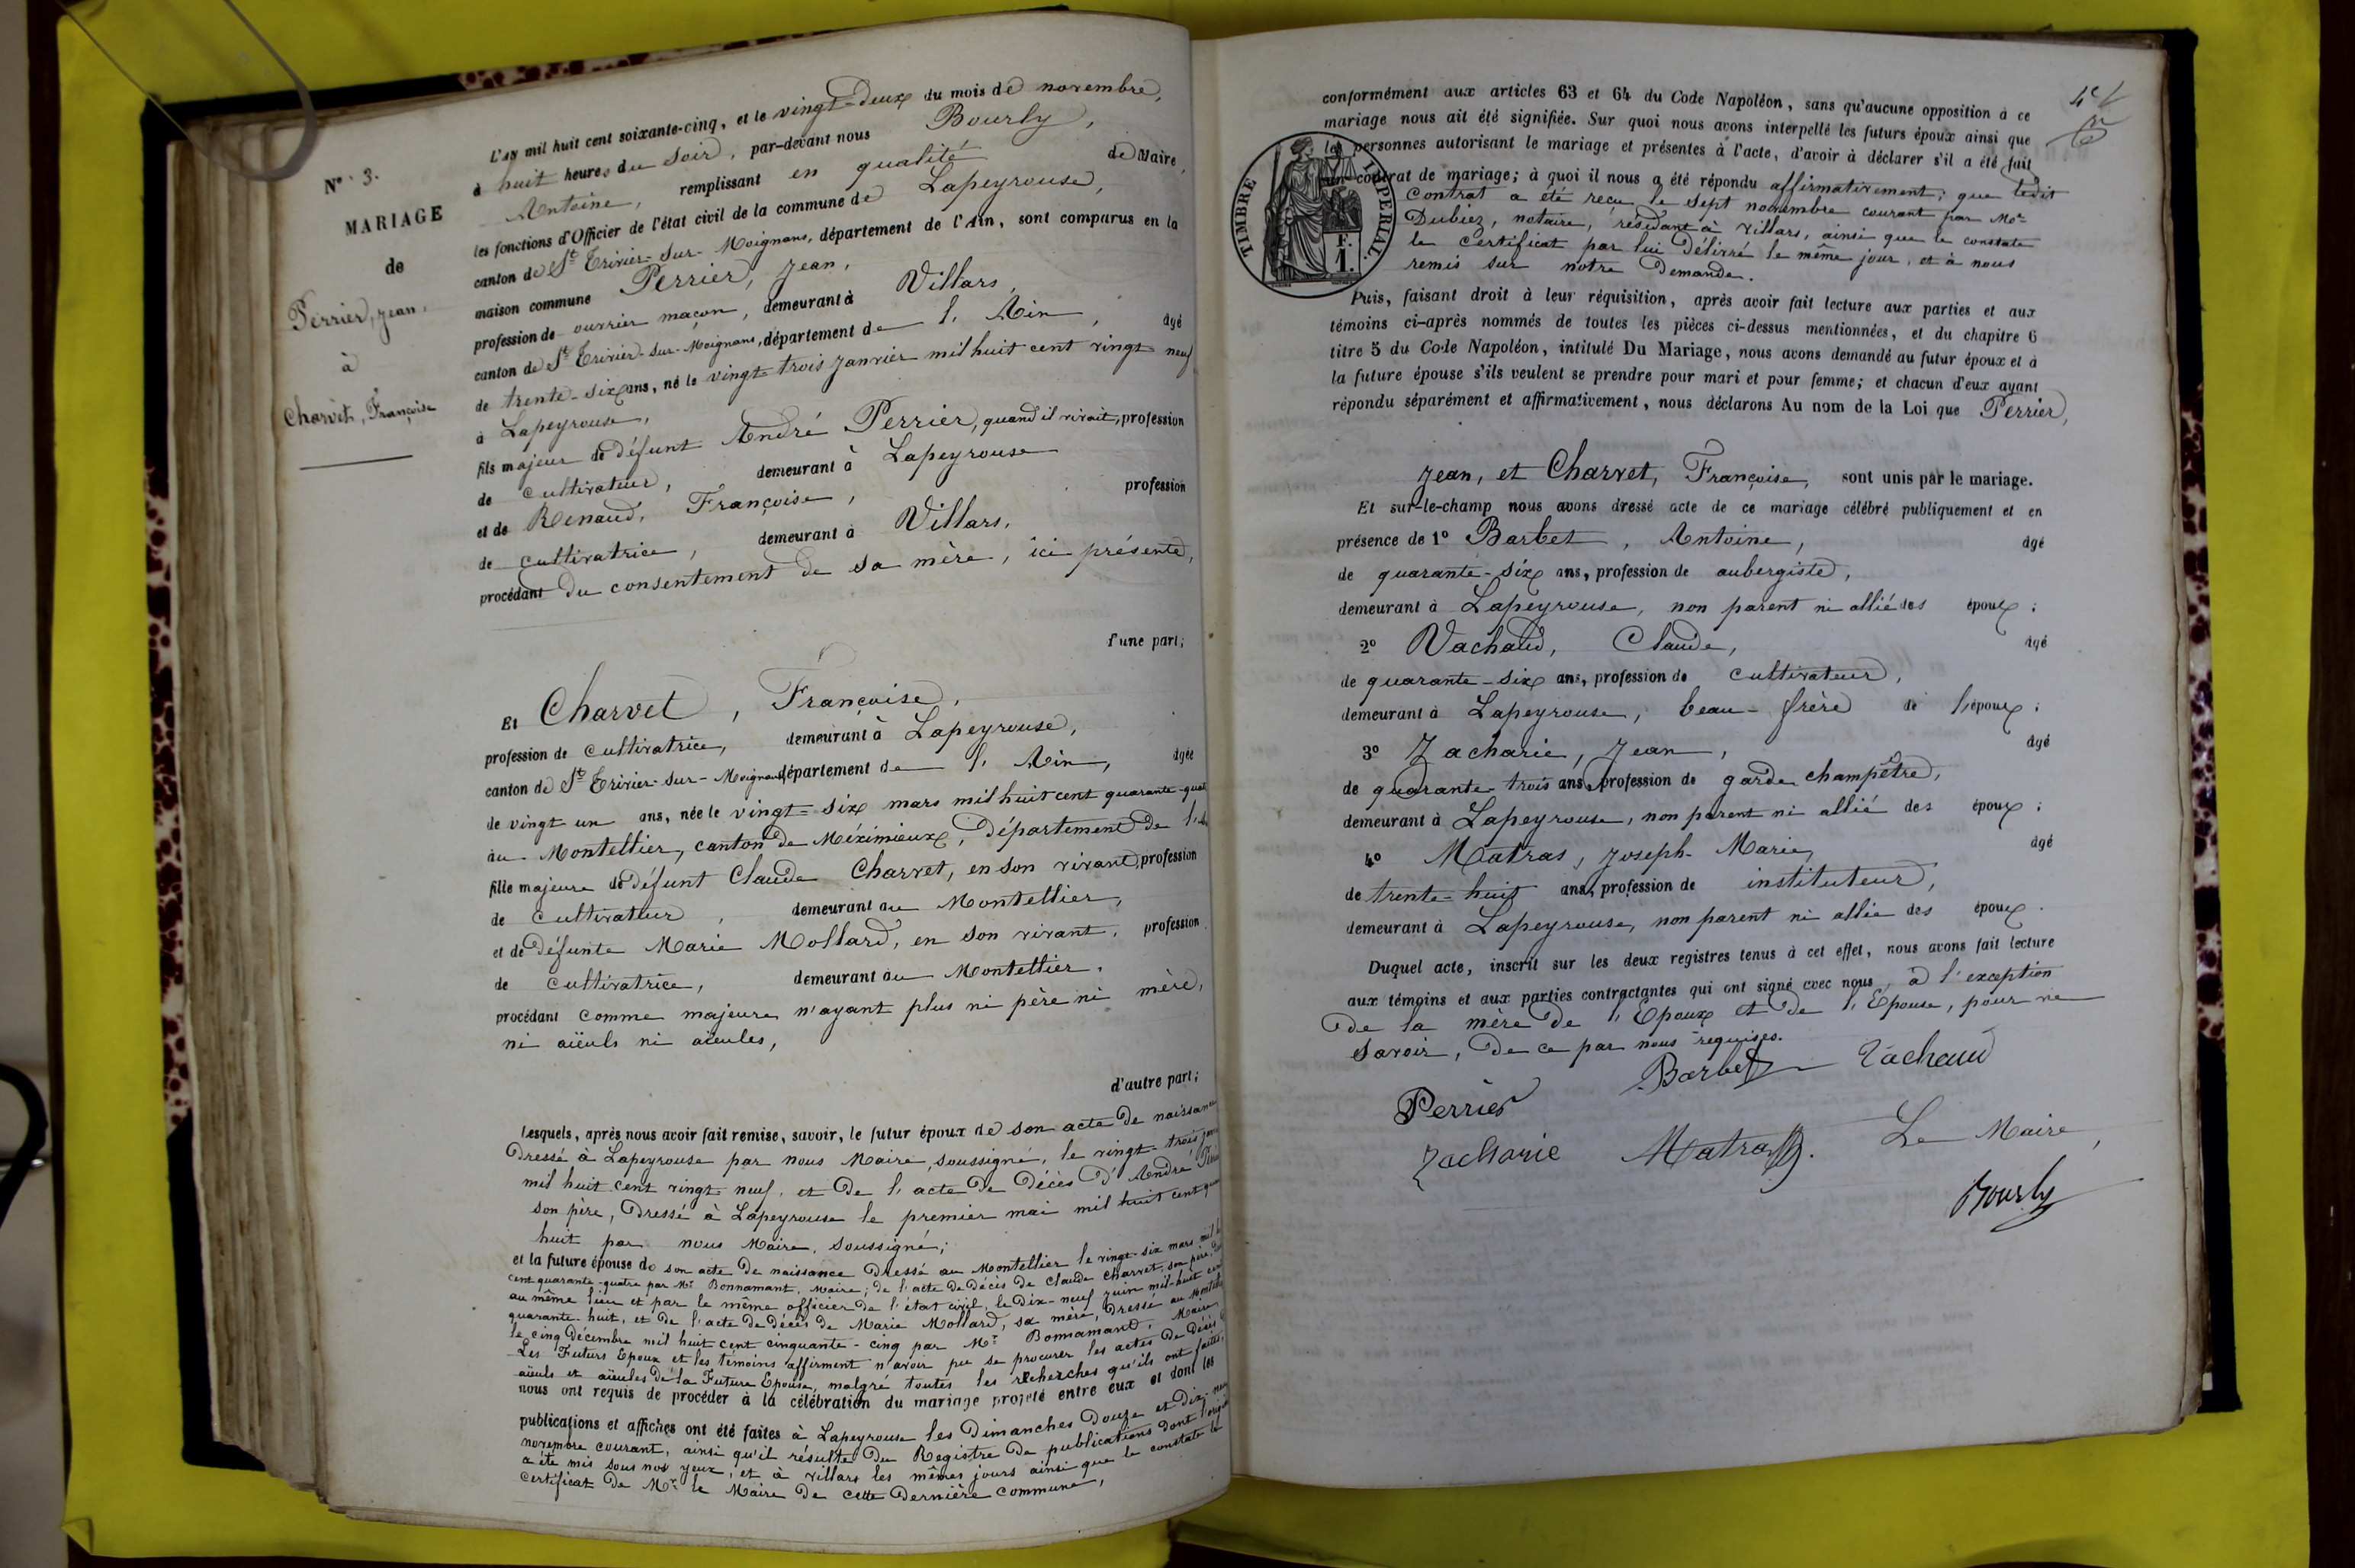 N° 3.
MARIAGE
de
Perrier, Jean,
à
Charvet, Françoise
L'an mil huit cent soixante-cinq, et le vingt-deux du mois de novembre,
à huit heures du soir, par-devant nous Bourly,
Antoine, remplissant en qualité de Maire,
les fonctions d'Officier de l'état civil de la commune de Lapeyrouse,
canton de St Trivier-sur-Moignans, département de l'Ain, sont comparus en la
maison commune Perrier, Jean,
profession de ouvrier maçon, demeurant à Villars,
canton de St Trivier-sur-Moignans, département de l'Ain, âgé
de trente-six ans, né le vingt-trois janvier mil huit cent vingt-neuf
à Lapeyrouse,
fils majeur de défunt André Perrier, quand il vivait, profession
de cultivateur, demeurant à Lapeyrouse
et de Renaud, Françoise, profession
de cultivatrice, demeurant à Villars,
procédant du consentement de sa mère, ici présente,
d'une part;
Et Charvet, Françoise,
profession de cultivatrice, demeurant à Lapeyrouse,
canton de St Trivier-sur-Moignans département de l'Ain, âgée
de vingt un ans, née le vingt-six mars mil huit cent quarante-quat
au Montellier, canton de Méximieux, département de l'
fille majeure de défunt Claude Charvet, en son vivant, profession
de cultivateur, demeurant au Montellier,
et de défunte Marie Mollard, en son vivant, profession
de cultivatrice, demeurant au Montellier,
procédant comme majeure n'ayant plus ni père ni mère,
ni aïeuls ni aïeules,
d'autre part;
Lesquels, après nous avoir fait remise, savoir, le futur époux de son acte de naissance
dressé à Lapeyrouse par nous Maire, soussigné, le vingt-trois
mil huit cent vingt-neuf, et de l'acte de décès d'André
son père, dressé à Lapeyrouse le premier mai mil huit cent
huit par nous Maire, soussigné;
et la future épouse de son acte de naissance dressé au Montellier le vingt-six mars mil
cent quarante-quatre par Mr Bonnamant, Maire; de l'acte de décès de Claude Charvet, son père,
au même lieu et par le même officier de l'état civil, le dix-neuf juin mil-huit cent
quarante-huit, et de l'acte de décès de Marie Mollard, sa mère, dressé au
le cinq décembre mil huit cent cinquante-cinq par Mr Bonnamant, Maire
Les Futurs Epoux et les témoins affirment n'avoir pu se procurer les actes de décès
aïeuls et aïeules de la Future Epouse, malgré toutes les recherches qu'ils ont faites,
nous ont requis de procéder à la célébration du mariage projeté entre eux et dont les
publications et affiches ont été faites à Lapeyrouse les Dimanches Douze et Dix-neuf
novembre courant, ainsi qu'il résulte du Registre de publications dont
a été mis sous nos yeux, et à Villars les mêmes jours ainsi que le constate le
certificat de Mr le Maire de cette dernière commune,
conformément aux articles 63 et 64 du Code Napoléon, sans qu'aucune opposition à ce
mariage nous ait été signifiée. Sur quoi nous avons interpellé les futurs époux ainsi que
les personnes autorisant le mariage et présentes à l'acte, d'avoir à déclarer s'il a été fait
un contrat de mariage; à quoi il nous a été répondu affirmativement; que ledit
contrat a été reçu le sept novembre courant par Me
Dubiez, notaire, résidant à Villars, ainsi que le constate
le certificat par lui délivré le même jour, et à nous
remis sur notre demande.
TIMBRE IMPERIAL
F.
1.
Puis, faisant droit à leur réquisition, après avoir fait lecture aux parties et aux
témoins ci-après nommés de toutes les pièces ci-dessus mentionnées, et du chapitre 6
titre 5 du Code Napoléon, intitulé Du Mariage, nous avons demandé au futur époux et à
la future épouse s'ils veulent se prendre pour mari et pour femme; et chacun d'eux ayant
répondu séparément et affirmativement, nous déclarons Au nom de la Loi que Perrier,
Jean, et Charvet, Françoise, sont unis par le mariage.
Et sur-le-champ nous avons dressé acte de ce mariage célébré publiquement et en
présence de 1° Barbet, Antoine, âgé
de quarante-six ans, profession de aubergiste,
demeurant à Lapeyrouse, non parent ni allié des époux;
2° Vachaud, Claude, âgé
de quarante-six ans, profession de cultivateur,
demeurant à Lapeyrouse, beau-frère de l'époux;
3° Zacharie, Jean, âgé
de quarante-trois ans, profession de garde champêtre,
demeurant à Lapeyrouse, non parent ni allié des époux;
4° Matras, Joseph-Marie, âgé
de trente-huit ans, profession de instituteur,
demeurant à Lapeyrouse, non parent ni allié des époux.
Duquel acte, inscrit sur les deux registres tenus à cet effet, nous avons fait lecture
aux témoins et aux parties contractantes qui ont signé avec nous, à l'exception
de la mère de l'Epoux et de l'Epouse, pour ne
savoir, de ce par nous requises.
Perrier Barbet Vachaud
Zacharie Matras J. Le Maire,
Bourly